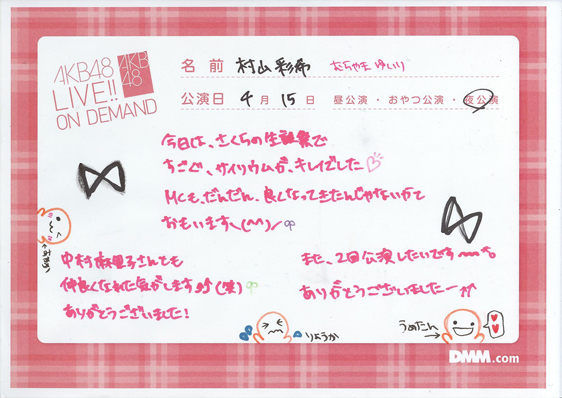 AKB48
LIVE!!
ON DEMAND
AKB
48
名前 村山彩希 むらやま ゆいり
公演日 4月 15日 昼公演・おやつ公演・夜公演
今日は、さくらの生誕祭で
すごく、サイリウムが、キレイでした♡
MCも、だんだん、良くなってきたんじゃないかと
おもいます、(^^)/
中村麻里子さんても
仲良くなれた気がします (笑)
ありがとうございました!
また、2回公演したいです
ありがとうございましたー
りょうか
うめたん
DMM.com